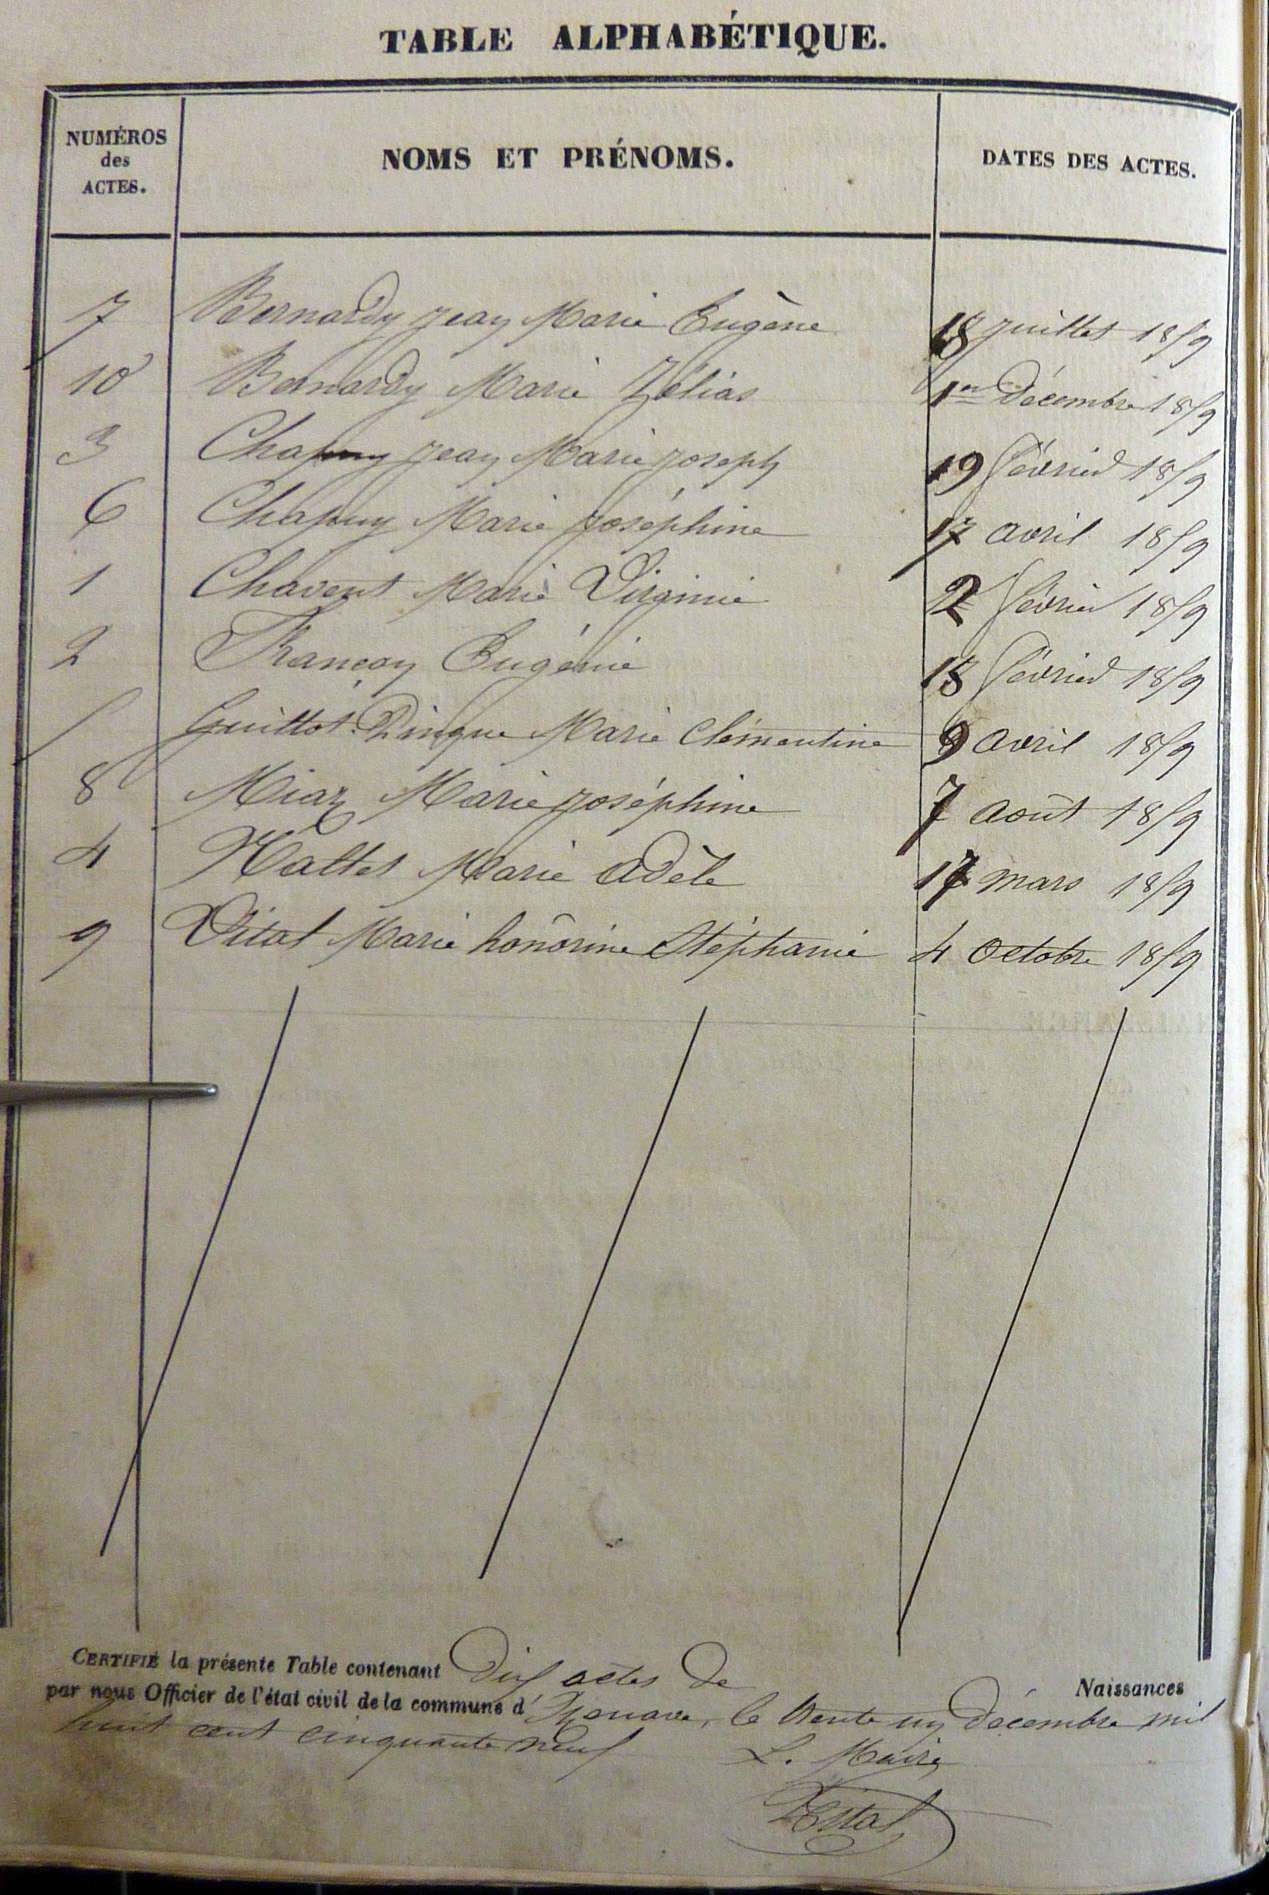 TABLE ALPHABÉTIQUE.
NUMÉROS des ACTES. NOMS ET PRÉNOMS. DATES DES ACTES.
7 Bernardy Jean Marie Eugène 18 juillet 1859
10 Bernardy Marie Zélias 1er Décembre 1859
3 Chapuy Jean Marie Joseph 19 février 1859
6 Chapuy Marie Joséphine 17 avril 1859
1 Chavent Marie Virginie 2 février 1859
2 Françoy Eugénie 18 février 1859
5 Guillot-Pingue Marie Clémentine 9 avril 1859
8 Miaz Marie Joséphine 7 août 1859
4 Nallet Marie Adèle 17 mars 1859
9 Vital Marie honôrine Stéphanie 4 Octobre 1859
CERTIFIÉ la présente Table contenant Dix actes de Naissances
par nous Officier de l'état civil de la commune d' le trente un décembre mil
huit cent cinquante neuf
L. Maire
Vital